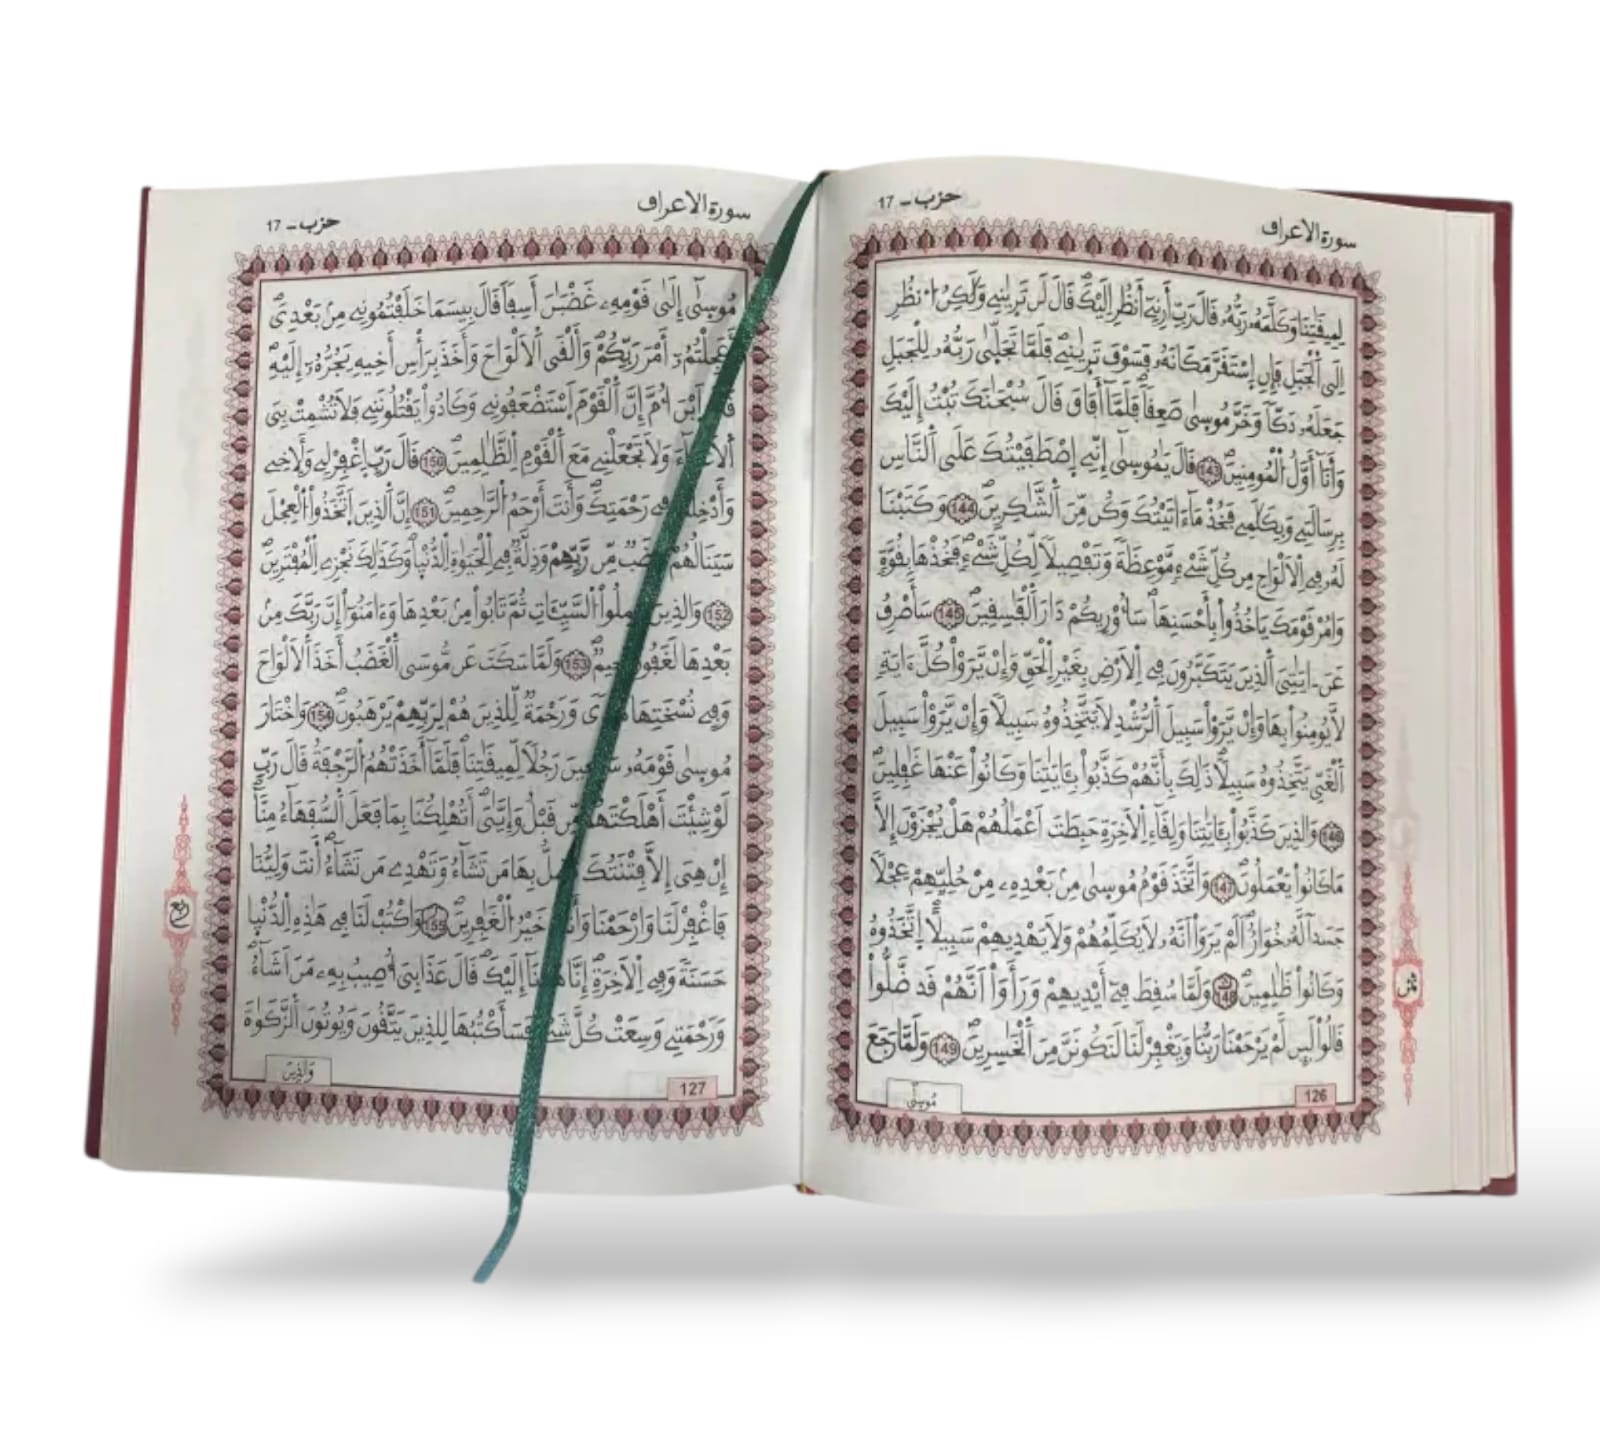 سورة الاعراف
حزب - 17
لِمِيقَٰتِنَا وَكَلَّمَهُۥ رَبُّهُۥ قَالَ رَبِّ أَرِنِےٓ أَنظُرِ اِلَيْكَۖ قَالَ لَن تَر۪ينِے وَلَٰكِنُ ا۟نظُرِ
اِلَى اَ۬لْجَبَلِ فَإِنِ اِ۪سْتَقَرَّ مَكَانَهُۥ فَسَوْفَ تَر۪ينِےۖ فَلَمَّا تَجَلّ۪ىٰ رَبُّهُۥ لِلْجَبَلِ
جَعَلَهُۥ دَكّاٗ وَخَرَّ مُوس۪ىٰ صَعِقاٗۖ فَلَمَّآ أَفَاقَ قَالَ سُبْحَٰنَكَ تُبْتُ إِلَيْكَ
وَأَنَآ أَوَّلُ اُ۬لْمُومِنِينَۖ 143 قَالَ يَٰمُوس۪ىٰٓ إِنِّے اِ۪صْطَفَيْتُكَ عَلَى اَ۬لنَّاسِ
بِرِسَٰلَتِے وَبِكَلَٰمِے فَخُذْ مَآ ءَاتَيْتُكَ وَكُن مِّنَ اَ۬لشَّٰكِرِينَۖ 144 وَكَتَبْنَا
لَهُۥ فِے اِ۬لَالْوَاحِ مِن كُلِّ شَےْءٖ مَّوْعِظَةٗ وَتَفْصِيلاٗ لِّكُلِّ شَےْءٖۖ فَخُذْهَا بِقُوَّةٖ
وَامُرْ قَوْمَكَ يَاخُذُواْ بِأَحْسَنِهَاۖ سَأُوْرِيكُمْ دَارَ اَ۬لْفَٰسِقِينَۖ 145 سَأَصْرِفُ
عَنَ ـ ايَٰتِيَ اَ۬لذِينَ يَتَكَبَّرُونَ فِے اِ۬لَارْضِ بِغَيْرِ اِ۬لْحَقِّ وَإِنْ يَّرَوْاْ كُلَّ ءَايَةٖ
لَّا يُومِنُواْ بِهَا وَإِنْ يَّرَوْاْ سَبِيلَ اَ۬لرُّشْدِ لَا يَتَّخِذُوهُ سَبِيلاٗ وَإِنْ يَّرَوْاْ سَبِيلَ
اَ۬لْغَيِّ يَتَّخِذُوهُ سَبِيلاٗۖ ذَٰلِكَ بِأَنَّهُمْ كَذَّبُواْ بِـَٔايَٰتِنَا وَكَانُواْ عَنْهَا غَٰفِلِينَۖ
146 وَالذِينَ كَذَّبُواْ بِـَٔايَٰتِنَا وَلِقَآءِ اِ۬لَاخِرَةِ حَبِطَتَ اَعْمَٰلُهُمْ هَلْ يُجْزَوْنَ إِلَّا
مَا كَانُواْ يَعْمَلُونَۖ 147 وَاتَّخَذَ قَوْمُ مُوس۪ىٰ مِنۢ بَعْدِهِۦ مِنْ حُلِيِّهِمْ عِجْلاٗ
جَسَداٗ لَّهُۥ خُوَارٌۖ اَلَمْ يَرَوَاْ اَنَّهُۥ لَا يُكَلِّمُهُمْ وَلَا يَهْدِيهِمْ سَبِيلاًۖ اِ۪تَّخَذُوهُ
وَكَانُواْ ظَٰلِمِينَۖ 148 وَلَمَّا سُقِطَ فِےٓ أَيْدِيهِمْ وَرَأَوَاْ اَنَّهُمْ قَد ضَّلُّواْ
قَالُواْ لَئِن لَّمْ يَرْحَمْنَا رَبُّنَا وَيَغْفِرْ لَنَا لَنَكُونَنَّ مِنَ اَ۬لْخَٰسِرِينَۖ 149 وَلَمَّا رَجَعَ
ثمن
126
مُوسَىٰٓ
سورة الاعراف
حزب - 17
مُوس۪ىٰٓ إِلَىٰ قَوْمِهِۦ غَضْبَٰنَ أَسِفاٗ قَالَ بِيسَمَا خَلَفْتُمُونِے مِنۢ بَعْدِيَۖ
أَعَجِلْتُمُۥٓ أَمْرَ رَبِّكُمْۖ وَأَلْقَى اَ۬لَالْوَاحَ وَأَخَذَ بِرَأْسِ أَخِيهِ يَجُرُّهُۥٓ إِلَيْهِۖ
اَ۪بْنَ أُمَّ إِنَّ اَ۬لْقَوْمَ اَ۪سْتَضْعَفُونِے وَكَادُواْ يَقْتُلُونَنِے فَلَا تُشْمِتْ بِيَ
اَ۬لَاعْدَآءَ وَلَا تَجْعَلْنِے مَعَ اَ۬لْقَوْمِ اِ۬لظَّٰلِمِينَۖ 150 قَالَ رَبِّ اِ۪غْفِرْ لِے وَلِأَخِے
وَأَدْخِلْنَا فِے رَحْمَتِكَۖ وَأَنتَ أَرْحَمُ اُ۬لرَّٰحِمِينَۖ 151 إِنَّ اَ۬لذِينَ اَ۪تَّخَذُواْ اُ۬لْعِجْلَ
سَيَنَالُهُمْ غَضَبٞ مِّن رَّبِّهِمْ وَذِلَّةٞ فِے اِ۬لْحَيَوٰةِ اِ۬لدُّنْي۪اۖ وَكَذَٰلِكَ نَجْزِے اِ۬لْمُفْتَرِينَۖ
152 وَالذِينَ عَمِلُواْ اُ۬لسَّيِّـَٔاتِ ثُمَّ تَابُواْ مِنۢ بَعْدِهَا وَءَامَنُوٓاْ إِنَّ رَبَّكَ مِنۢ
بَعْدِهَا لَغَفُورٞ رَّحِيمٞۖ 153 وَلَمَّا سَكَتَ عَن مُّوسَى اَ۬لْغَضَبُ أَخَذَ اَ۬لَالْوَاحَ
وَفِے نُسْخَتِهَا هُدىٗ وَرَحْمَةٞ لِّلذِينَ هُمْ لِرَبِّهِمْ يَرْهَبُونَۖ 154 وَاخْتَارَ
مُوس۪ىٰ قَوْمَهُۥ سَبْعِينَ رَجُلاٗ لِّمِيقَٰتِنَاۖ فَلَمَّآ أَخَذَتْهُمُ اُ۬لرَّجْفَةُ قَالَ رَبِّ
لَوْ شِئْتَ أَهْلَكْتَهُم مِّن قَبْلُ وَإِيَّٰيَۖ أَتُهْلِكُنَا بِمَا فَعَلَ اَ۬لسُّفَهَآءُ مِنَّآۖ
إِنْ هِيَ إِلَّا فِتْنَتُكَ تُضِلُّ بِهَا مَن تَشَآءُ وَتَهْدِے مَن تَشَآءُۖ أَنتَ وَلِيُّنَا
فَاغْفِرْ لَنَا وَارْحَمْنَا وَأَنتَ خَيْرُ اُ۬لْغَٰفِرِينَۖ 155 وَاكْتُبْ لَنَا فِے هَٰذِهِ اِ۬لدُّنْي۪ا
حَسَنَةٗ وَفِے اِ۬لَاخِرَةِۖ إِنَّا هُدْنَآ إِلَيْكَۖ قَالَ عَذَابِيَ أُصِيبُ بِهِۦ مَنَ اَشَآءُۖ
وَرَحْمَتِے وَسِعَتْ كُلَّ شَےْءٖۖ فَسَأَكْتُبُهَا لِلذِينَ يَتَّقُونَ وَيُوتُونَ اَ۬لزَّكَوٰةَ
ربع
127
وَالذِينَ